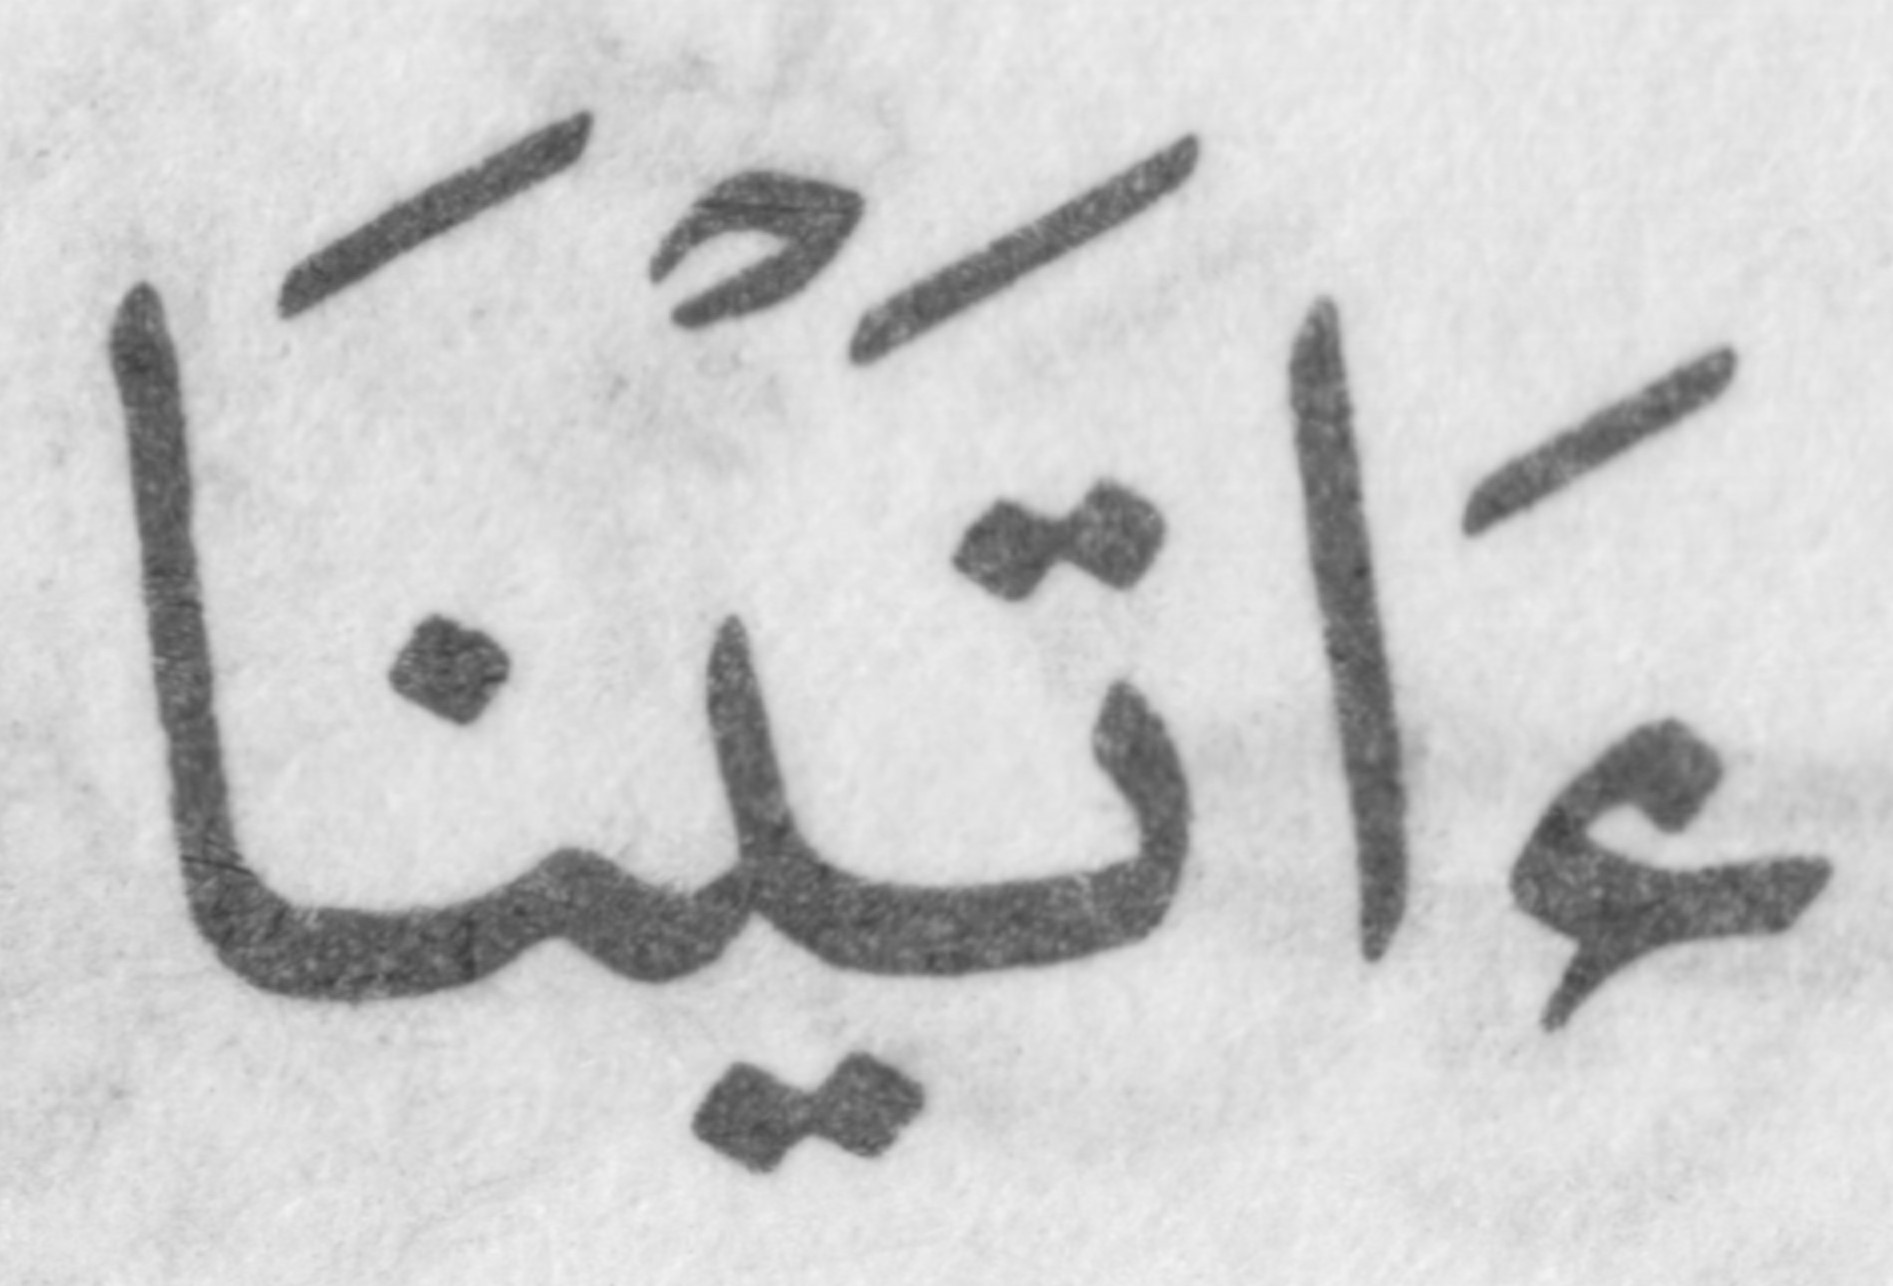 ءَاتَيْنَا